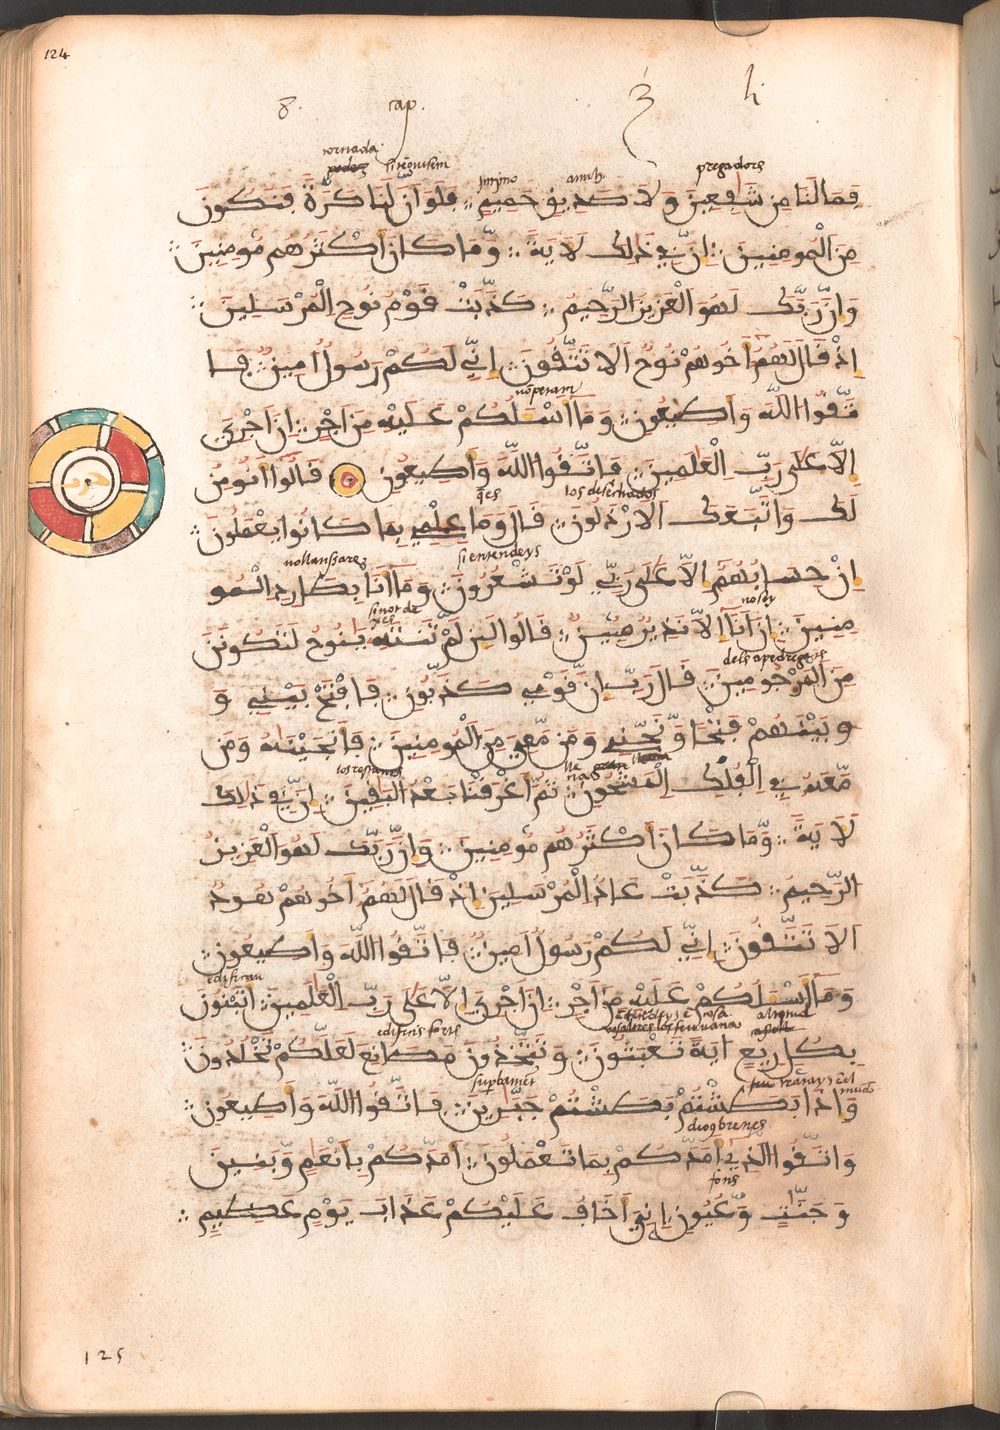 124
8. cap. h
tornada
si tēguisem
prejadors
amich
فَمَا لَنَا مِن شَٰفِعِينَ وَلَا صَدِيقٍ حَمِيمٍ ۞ فَلَوَ اَنَّ لَنَا كَرَّةً فَنَكُونَ
مِنَ اَلْمُومِنِينَ ۞ إِنَّ فِي ذَٰلِكَ لَأٓيَةً ۞ وَّمَا كَانَ أَكْثَرُهُم مُّومِنِينَ ۞
وَإِنَّ رَبَّكَ لَهُوَ اَلْعَزِيزُ اُلرَّحِيمُ ۞ كَذَّبَتْ قَوْمُ نُوحٍ اِلْمُرْسَلِينَ ۞
إِذْ قَالَ لَهُمُ أَخُوهُمْ نُوحٌ اَلَا تَتَّقُونَ ۞ إِنِّي لَكُمْ رَسُولٌ اَمِينٌ ۞ فَا
تَّقُوا اُللَّهَ وَأَطِيعُونِ ۞ وَمَا أَسْـَٔلُكُمْ عَلَيْهِ مِنَ اَجْرٍ ۞ اِنَ اَجْرِيَ
إِلَّا عَلَىٰ رَبِّ اِلْعَٰلَمِينَ ۞ فَاتَّقُوا اُللَّهَ وَأَطِيعُونِ ۞ قَالُوا أَنُومِنُ
los desechados
q̄es
لَكَ وَاتَّبَعَكَ اَلَارْذَلُونَ ۞ قَالَ وَمَا عِلْمِي بِمَا كَانُوا يَعْمَلُونَ ۞
si entendeys
no llanssare
إِنْ حِسَابُهُمُ إِلَّا عَلَىٰ رَبِّي لَوْ تَشْعُرُونَ ۞ وَمَا أَنَا بِطَارِدِ اِلْمُو
no soy
مِنِينَ ۞ إِنَ اَنَا إِلَّا نَذِيرٌ مُّبِينٌ ۞ قَالُوا لَئِن لَّمْ تَنتَهِ يَٰنُوحُ لَتَكُونَنَّ
dels apedregats
مِنَ اَلْمَرْجُومِينَ ۞ قَالَ رَبِّ إِنَّ قَوْمِي كَذَّبُونِ ۞ فَافْتَحْ بَيْنِي وَ
وَبَيْنَهُمْ فَتْحًا وَنَجِّنِي وَمَن مَّعِيَ مِنَ اَلْمُومِنِينَ ۞ فَأَنجَيْنَٰهُ وَمَن
los restants
مَّعَهُ فِي اِلْفُلْكِ اِلْمَشْحُونِ ۞ ثُمَّ أَغْرَقْنَا بَعْدُ اُلْبَاقِينَ ۞ إِنَّ فِي ذَٰلِكَ
لَأٓيَةً ۞ وَّمَا كَانَ أَكْثَرُهُم مُّومِنِينَ ۞ وَإِنَّ رَبَّكَ لَهُوَ اَلْعَزِيزُ
اُلرَّحِيمُ ۞ كَذَّبَتْ عَادٌ اُلْمُرْسَلِينَ إِذْ قَالَ لَهُمُ أَخُوهُمْ هُودٌ
اَلَا تَتَّقُونَ ۞ إِنِّي لَكُمْ رَسُولٌ اَمِينٌ ۞ فَاتَّقُوا اُللَّهَ وَأَطِيعُونِ ۞
edificau
وَمَا أَسْـَٔلُكُمْ عَلَيْهِ مِنَ اَجْرٍ ۞ اِنَ اَجْرِيَ إِلَّا عَلَىٰ رَبِّ اِلْعَٰلَمِينَ ۞ أَتَبْنُونَ
edificis forts
بِكُلِّ رِيعٍ اٰيَةً تَعْبَثُونَ ۞ وَتَتَّخِذُونَ مَصَانِعَ لَعَلَّكُمْ تَخْلُدُونَ ۞
وَإِذَا بَطَشْتُم بَطَشْتُمْ جَبَّارِينَ ۞ فَاتَّقُوا اُللَّهَ وَأَطِيعُونِ ۞
وَاتَّقُوا اُلَّذِي أَمَدَّكُمْ بِمَا تَعْمَلُونَ ۞ أَمَدَّكُمْ بِأَنْعَٰمٍ وَّبَنِينَ
fons
وَجَنَّٰتٍ وَّعُيُونٍ اِنِّيَ أَخَافُ عَلَيْكُمْ عَذَابَ يَوْمٍ عَظِيمٍ ۞
حزب
125